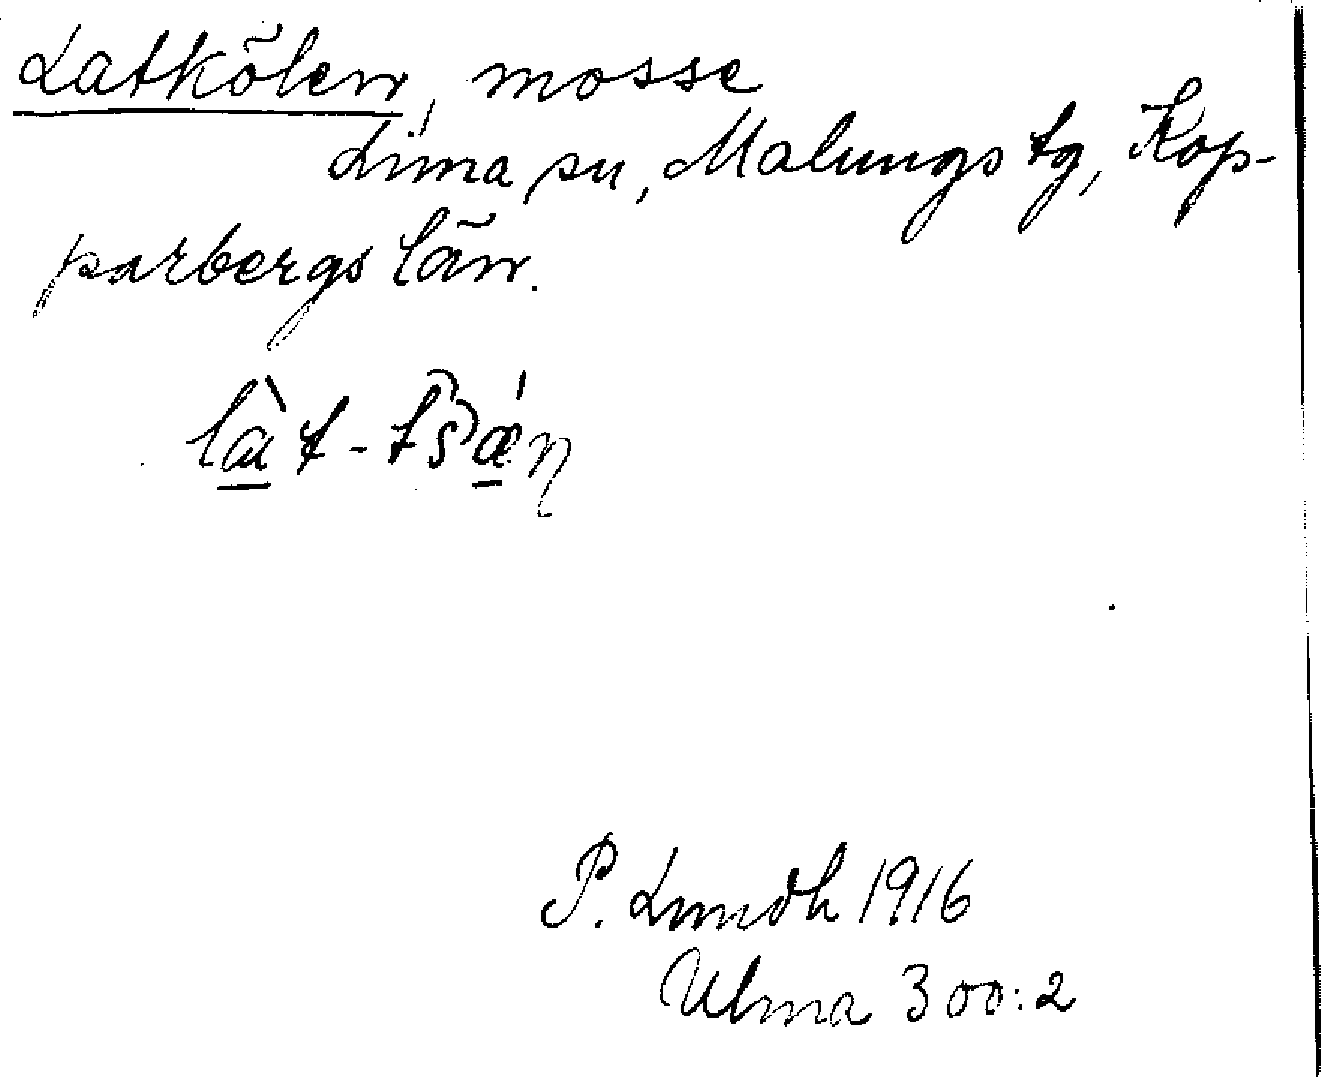 Latkölen, mosse
Lima sn, Malungs tg, Kop-
parbergs län.
làt-tšǽn
P. Lundh 1916
Ulma 300:2